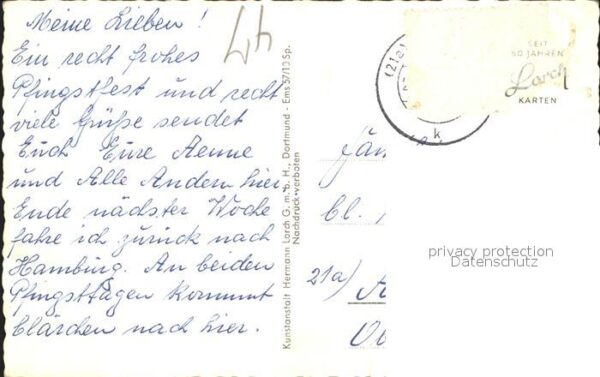 Meine Lieben!
Ein recht frohes
Pfingstfest und recht
viele Grüße sendet
Euch Eure Aenne
und Alle Andern hier.
Ende nächster Woche
fahre ich zurück nach
Hamburg. An beiden
Pfingsttagen kommt
Clärchen nach hier.
Kunstanstalt Hermann Lorch G. m. b. H., Dortmund - Ems 27/10 Sp.
Nachdruck verboten
(21a)
k
SEIT
50 JAHREN
Lorch
KARTEN
21a)
privacy protection
Datenschutz